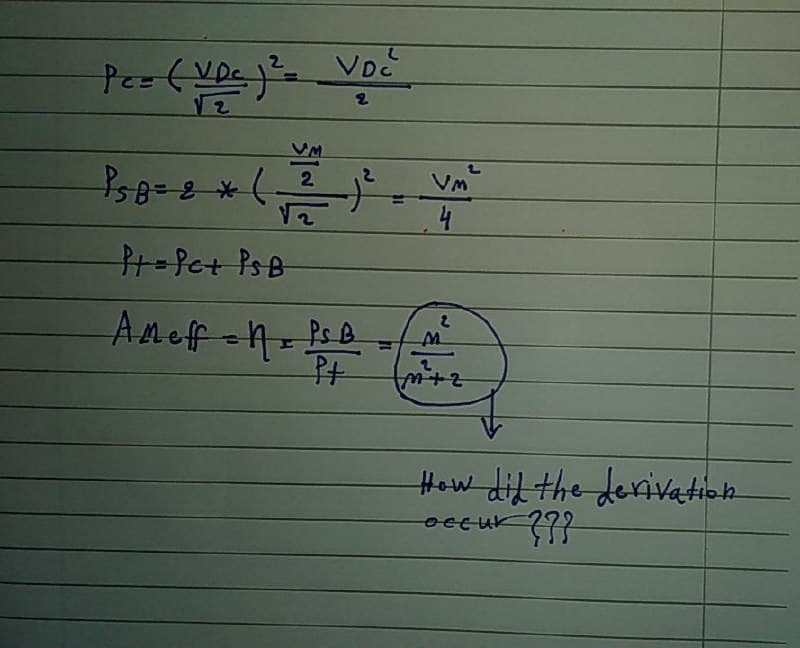 Pc = (VDc/√2)² = VDc²/2
PsB = 2 * ((VM/2)/√2)² = VM²/4
Pt = Pc + PsB
AM eff = η = PsB/Pt = m²/(m²+2)
How did the derivation
occur ???